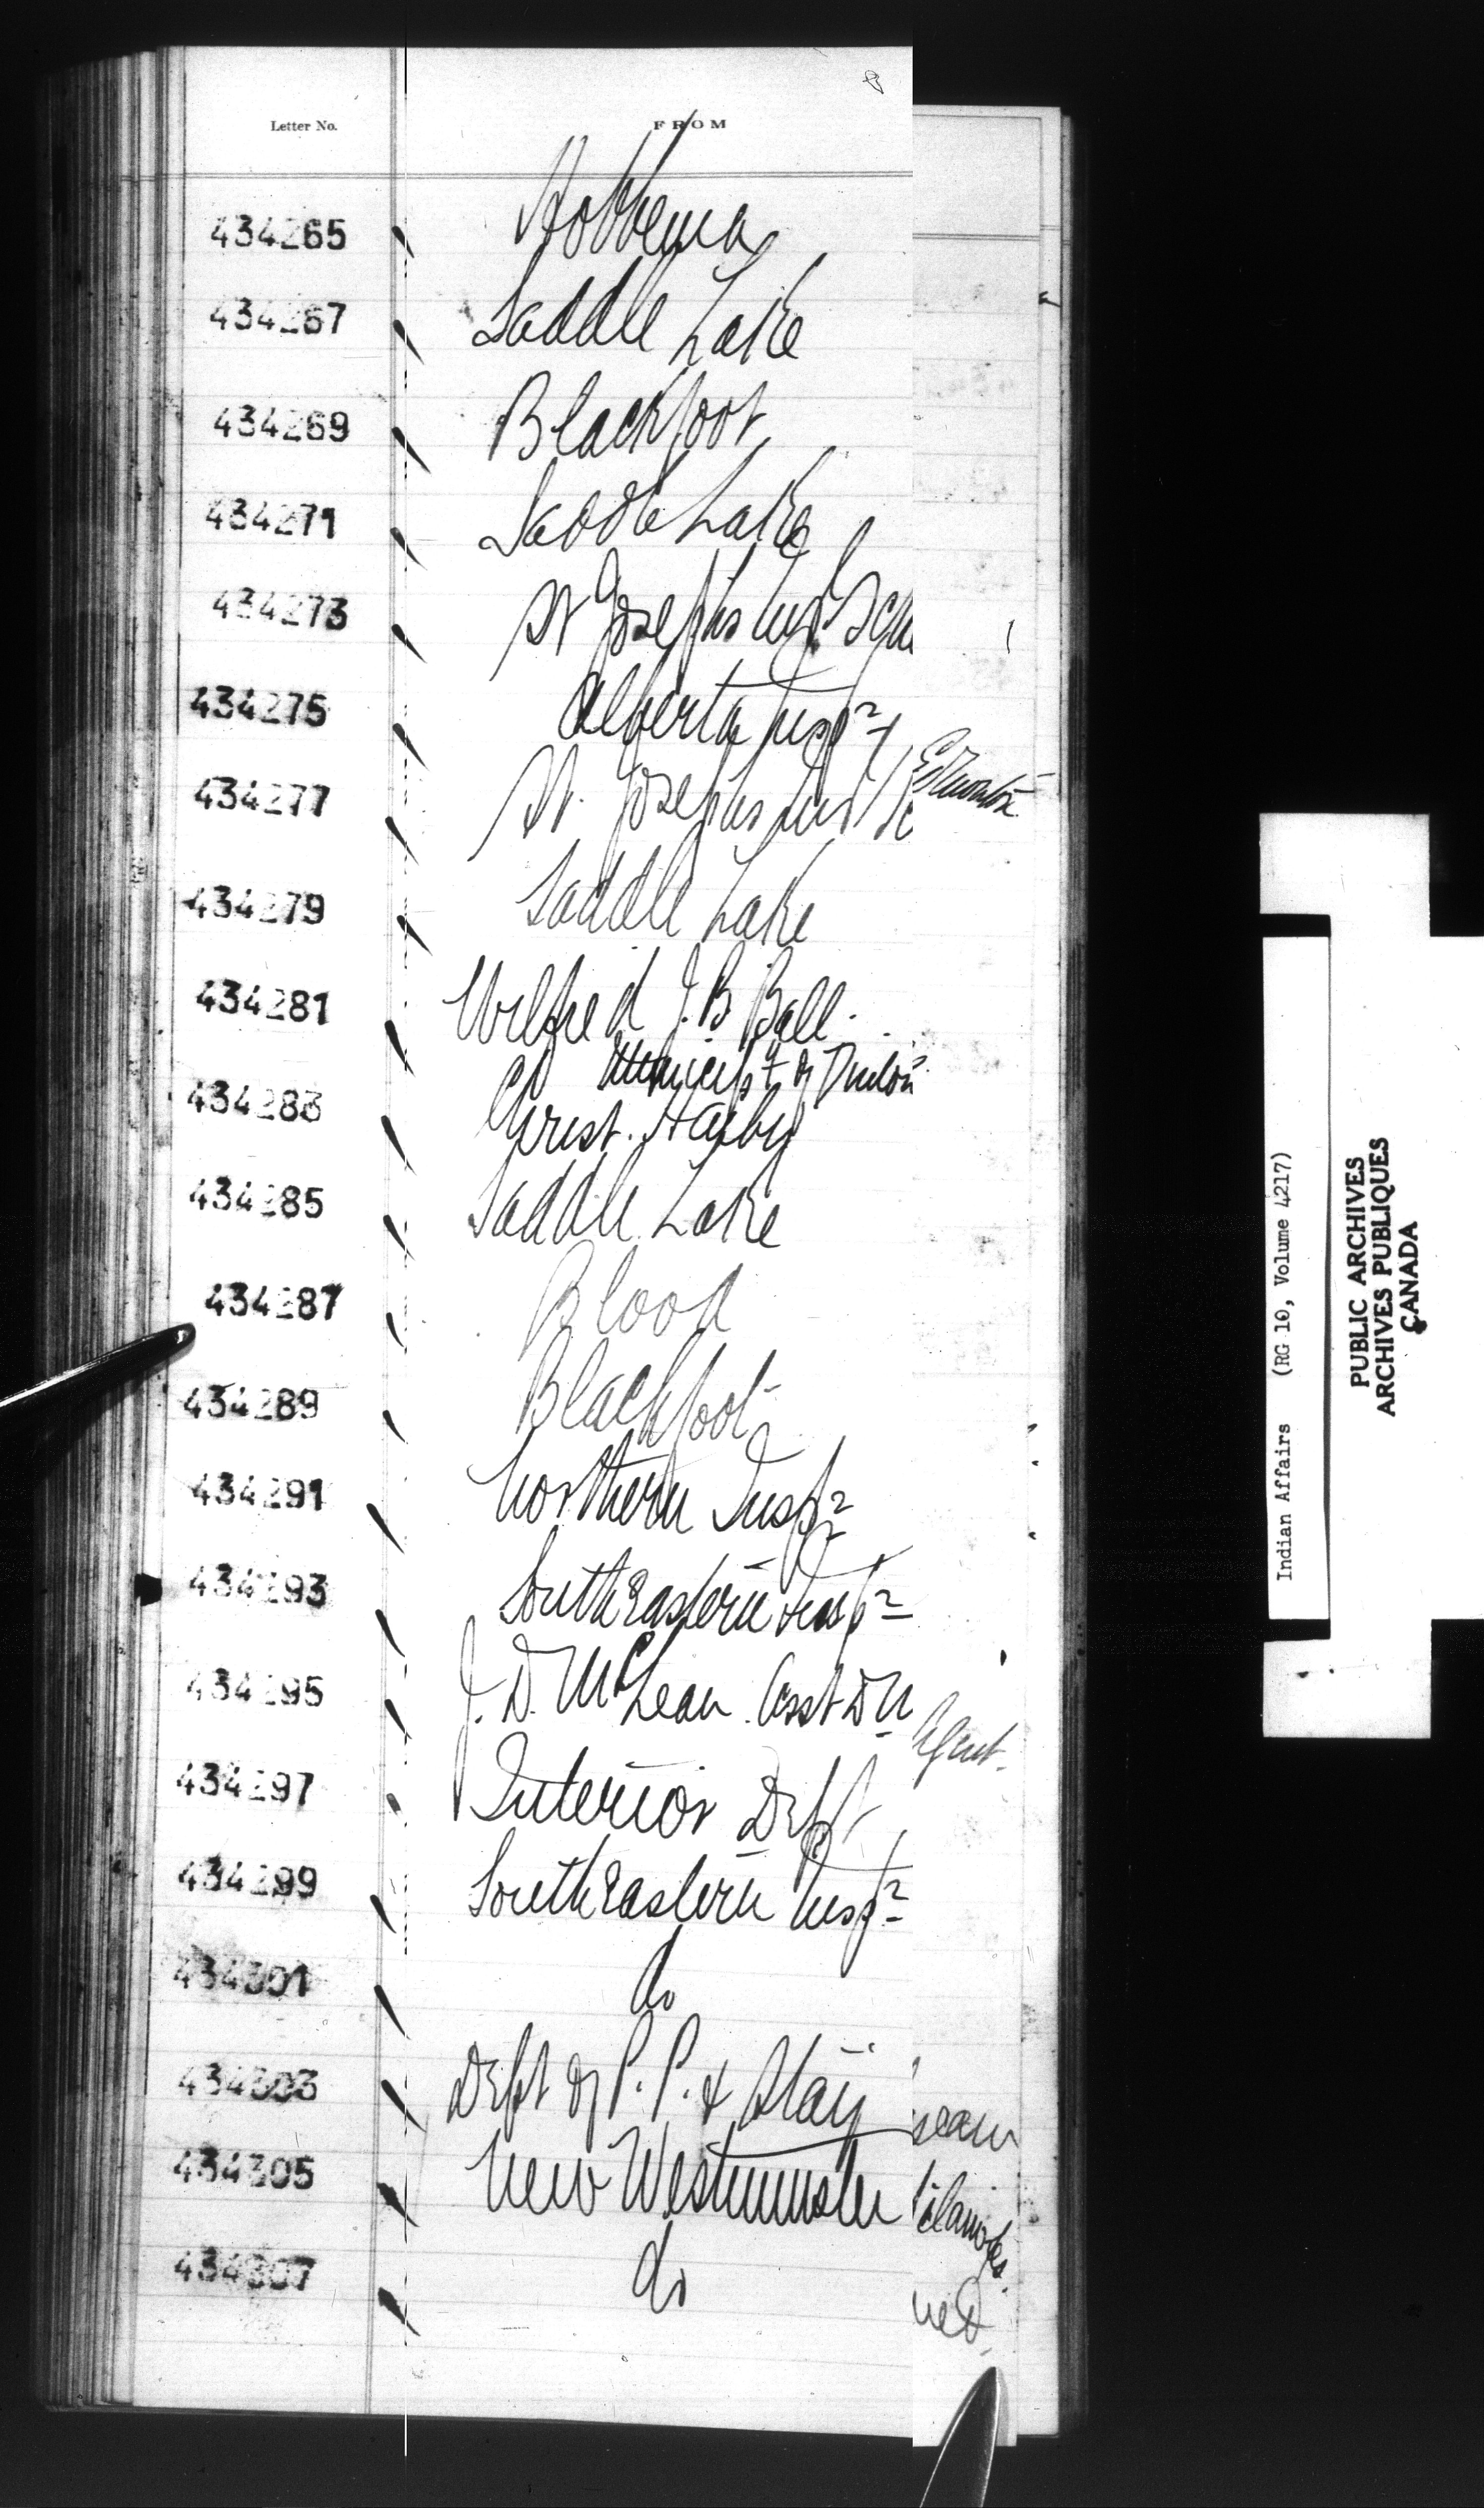 Letter No. FROM
434265 Hobbema
434267 Saddle Lake
434269 Blackfoot
434271 Saddle Lake
434273 St Josephs Ind Scho
434275 Alberta Insp
434277 St. Josephs Ind Sc
Edmonton
434279 Saddle Lake
434281 Wilfred J. B Ball.
Municip of
434283 Christ. Harby
434285 Saddle Lake
434287 Blood
434289 Blackfoot
434291 Northern Insp
434293 South Eastern Insp
434295 J. D. McLean. Asst D
Agent.
434297 Interior Dept
434299 South Eastern Insp
434301 do
434303 Dept of P. P. & Staty
434305 New Westminster
434307 do
Indian Affairs (RG 10, Volume 4217)
PUBLIC ARCHIVES
ARCHIVES PUBLIQUES
CANADA